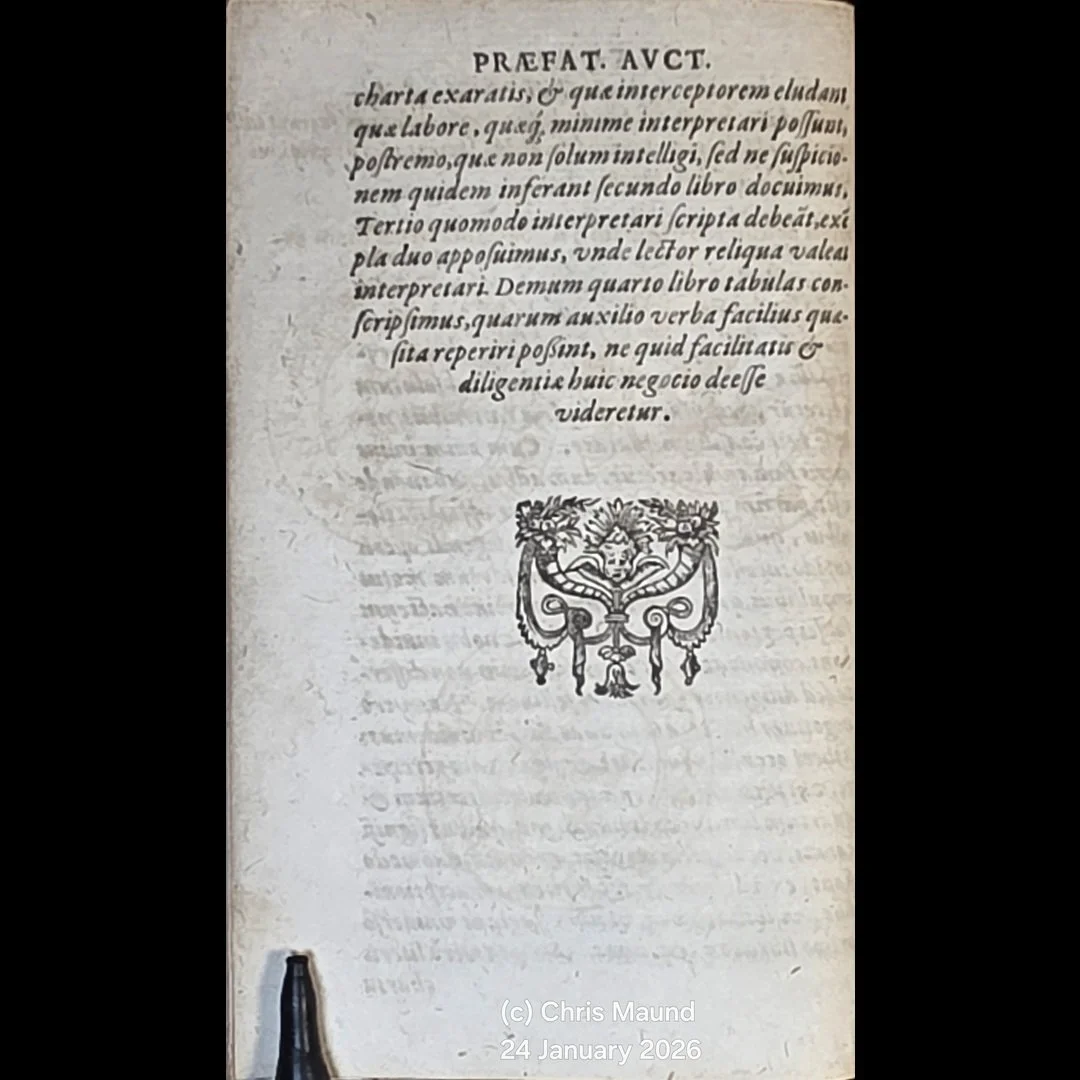 PRÆFAT. AVCT.
charta exaratis, & quæ interceptorem eludant
quæ labore, quæq́; minime interpretari possunt,
postremo, quæ non solum intelligi, sed ne suspicio-
nem quidem inferant secundo libro docuimus,
Tertio quomodo interpretari scripta debeãt, exẽ
pla duo apposuimus, vnde lector reliqua valeat
interpretari. Demum quarto libro tabulas con-
scripsimus, quarum auxilio verba facilius quæ-
sita reperiri possint, ne quid facilitatis &
diligentiæ huic negocio deesse
videretur.
(c) Chris Maund
24 January 2026